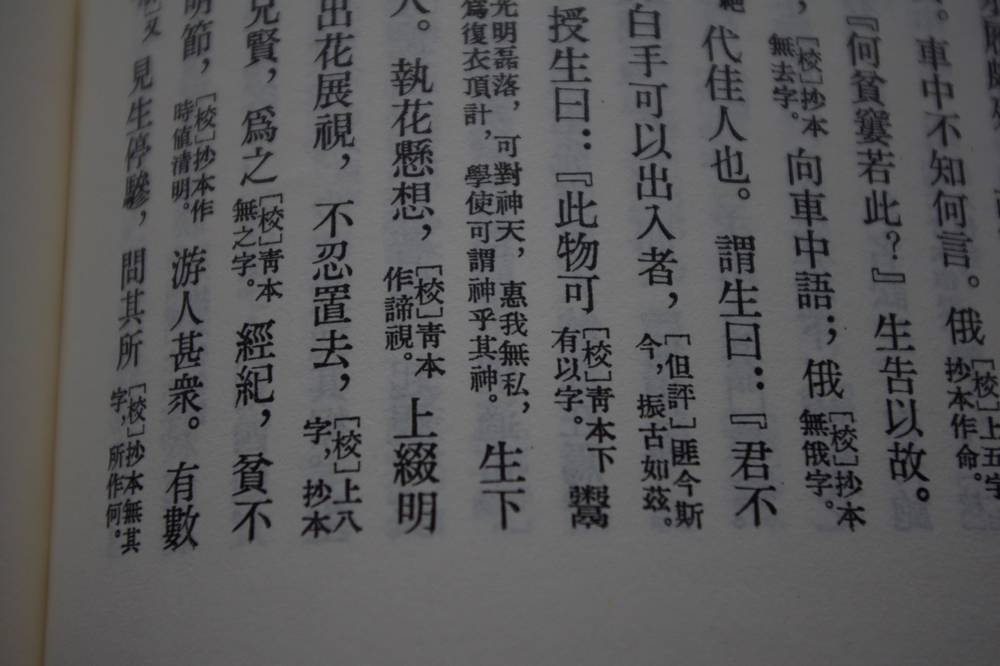 車中不知何言。俄[校]上五字抄本作命。
『何貧窶若此?』生告以故。
[校]抄本無去字。向車中語;俄[校]抄本無俄字。
代佳人也。謂生曰:『君不
白手可以出入者,[但評]匪今斯今,振古如茲。
授生曰:『此物可[校]青本下有以字。鬻
光明磊落,可對神天,惠我無私,爲復衣頂計,學使可謂神乎其神。生下
人。執花懸想,[校]青本作諦視。上綴明
出花展視,不忍置去,[校]上八字,抄本
兄賢,爲之[校]青本無之字。經紀,貧不
明節,[校]抄本作時値清明。游人甚衆。有數
見生停驂,問其所[校]抄本無其字,所作何。